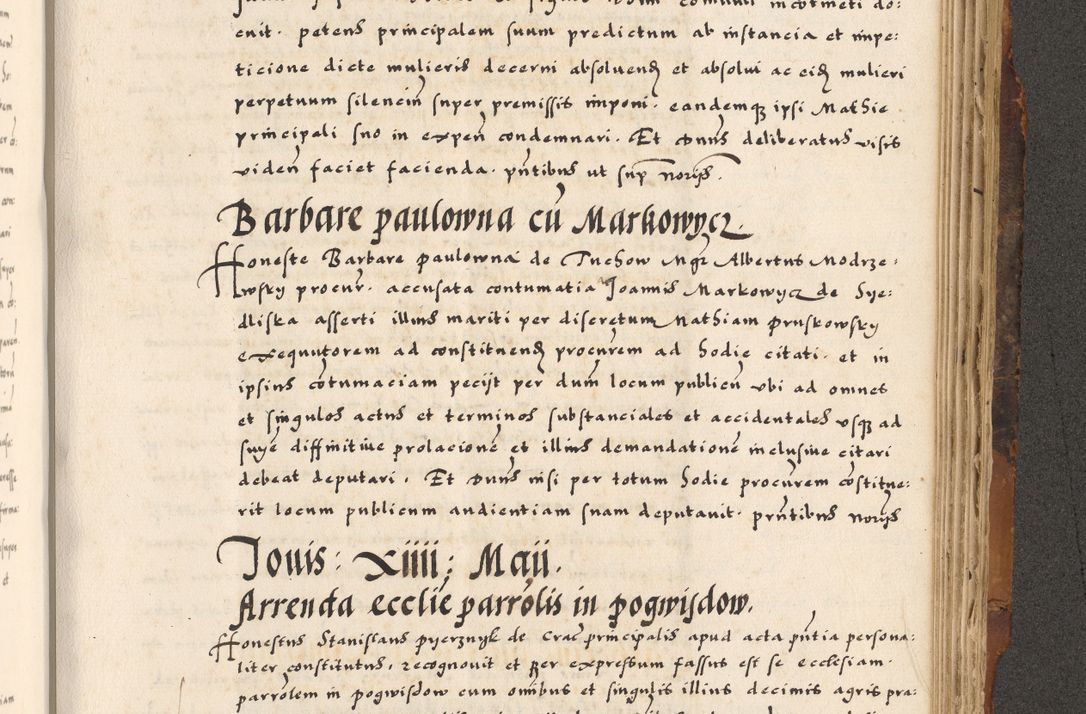 enit. petens principalem suum predictum ab instancia et impe:
ticione dicte mulieris decerni absoluend et absolui ac eid mulieri
perpetuum silenciu super premissis imponi. eandemq ipsi Mathie
principali suo in expen condemnari. Et Duns deliberatus visis
viden faciet facienda. pntibus ut sup noriis.
Barbare paulowna cu Markowycz
Honeste Barbare paulowna de Tuchow Mgr Albertus Modrze:
wsky procur. accusata contumatia Joannis Markowycz de Sye:
dliska asserti illius mariti per discretum Mathiam Pruskowsky
exequutorem ad constituend procurem ad hodie citati. et in
ipsius cotumaciam pecijt per dum locum publicu vbi ad omnes
et singulos actus et terminos substanciales et accidentales vsq ad
suye diffinitiue prolacione et illius demandatione inclusiue citari
debeat deputari. Et Duns nisi per totum hodie procurem costitue:
rit locum publicum audientiam suam deputauit. prntibus noriis
Jouis: Xiiii: Maii.
Arrenda ecclie parrolis in pogwisdow.
Honestus Stanislaus pyerznyk de Crac principalis apud acta pntia persona:
liter constitutus, recognouit et per expressum fassus est se ecclesiam
parrolem in pogwisdow cum omibus et singulis illius decimis agris pra: